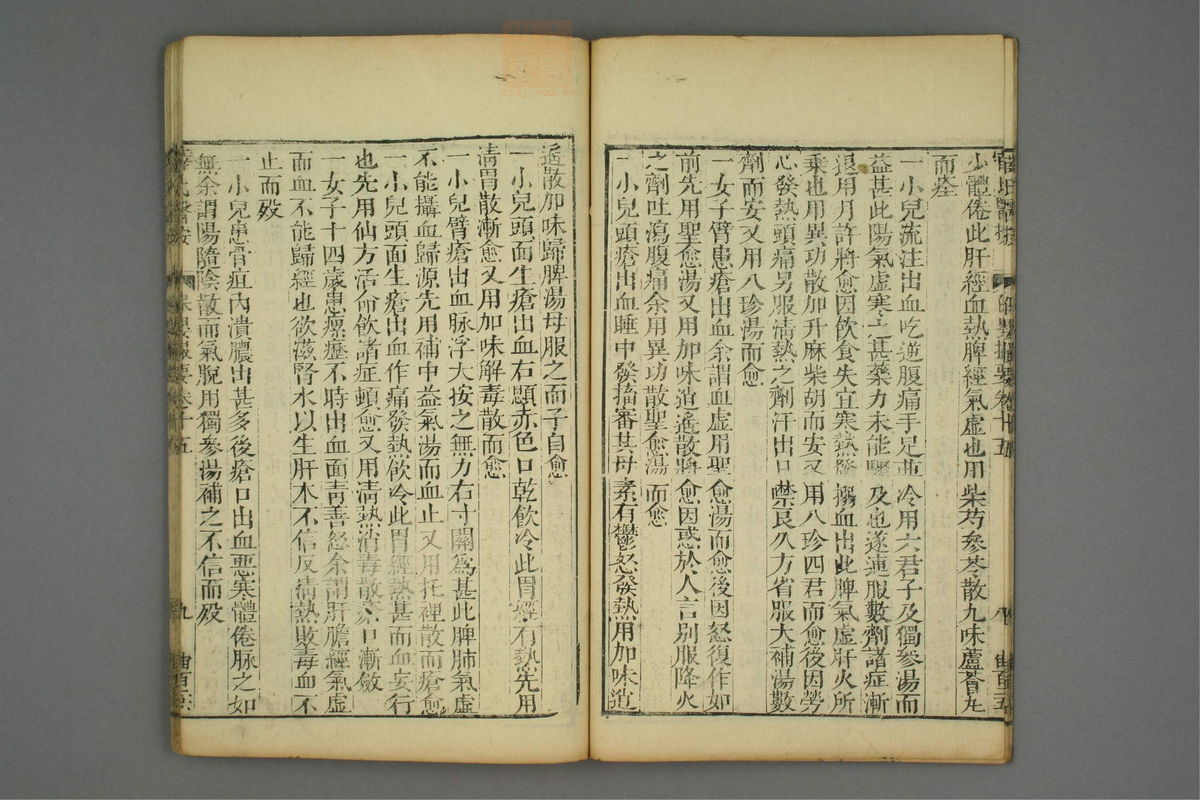 少體倦此肝經血熱脾經氣虛也用柴芍參苓散九味蘆薈丸
而痊
一小兒流注出血吃逆腹痛手足並冷用六君子及獨參湯而
益甚此陽氣虛寒之甚藥力未能驟及也遂連服數劑諸症漸
退用月許將愈因飲食失宜寒熱發搐血出此脾氣虛肝火所
乘也用異功散加升麻柴胡而安又用八珍四君而愈後因勞
心發熱頭痛另服清熱之劑汗出口禁良久方省服大補湯數
劑而安又用八珍湯而愈
一女子臂患瘡出血余謂血虛用聖愈湯而愈後因怒復作如
前先用聖愈湯又用加味逍遙散將愈因惑於人言別服降火
之劑吐瀉腹痛余用異功散聖愈湯而愈
一小兒頭瘡出血睡中發搐審其母素有鬱怒發熱用加味逍
遙散加味歸脾湯母服之而子自愈
一小兒頭面生瘡出血右顋赤色口乾飲冷此胃經有熱先用
清胃散漸愈又用加味解毒散而愈
一小兒臂瘡出血脉浮大按之無力右寸關為甚此脾肺氣虛
不能攝血歸源先用補中益氣湯而血止又用托裡散而瘡愈
一小兒頭面生瘡出血作痛發熱飲冷此胃經熱甚而血妄行
也先用仙方活命飲諸症頓愈又用清熱消毒散瘡口漸斂
一女子十四歲患瘰癧不時出血面青善怒余謂肝膽經氣虛
而血不能歸經也欲滋腎水以生肝木不信反清熱敗毒血不
止而殁
一小兒患骨疽內潰膿出甚多後瘡口出血惡寒體倦脉之如
無余謂陽隨陰散而氣脫用獨參湯補之不信而殁
薛氏醫按
保嬰撮要卷十五
九